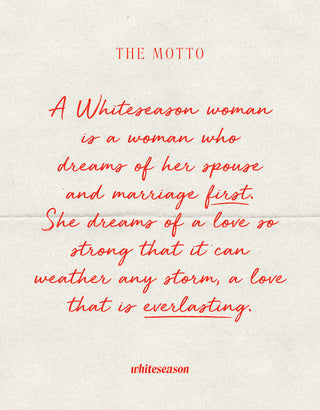 THE MOTTO
A Whiteseason woman
is a woman who
dreams of her spouse
and marriage first.
She dreams of a love so
strong that it can
weather any storm, a love
that is everlasting.
whiteseason